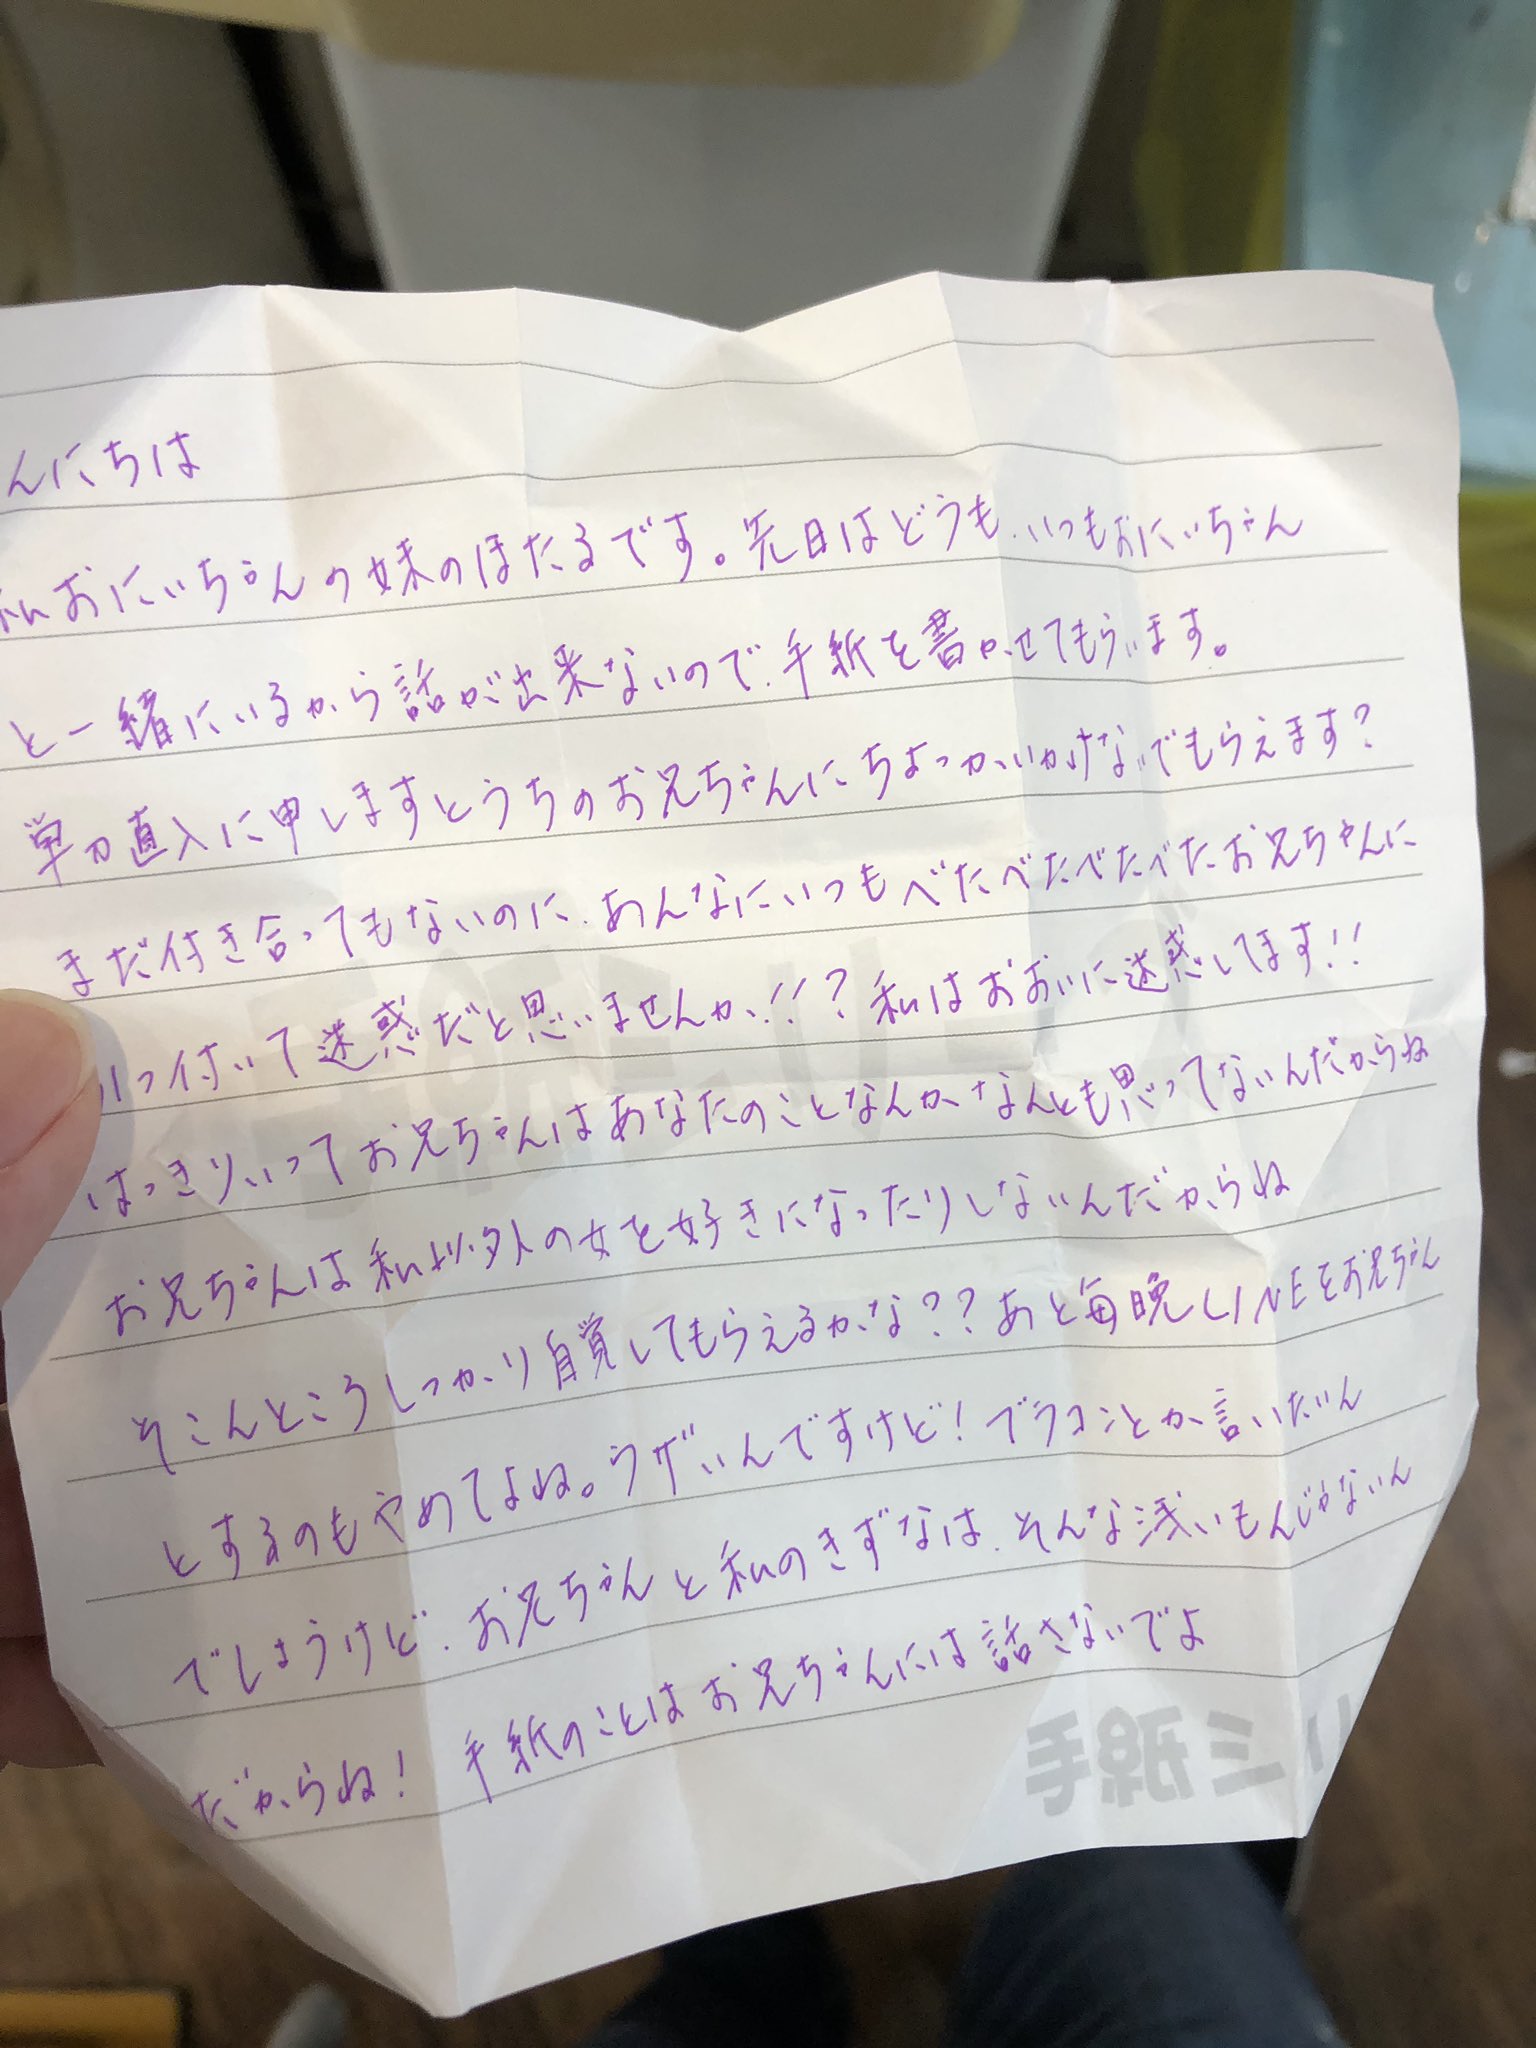 んにちは
私おにいちゃんの妹のほたるです。先日はどうも、いつもおにいちゃん
と一緒にいるから話が出来ないので、手紙を書かせてもらいます。
単刀直入に申しますとうちのお兄ちゃんにちょっかいかけないでもらえます?
まだ付き合ってもないのに、あんなにいつもべたべたべたべたお兄ちゃんに
っ付いて迷惑だと思いませんか!!? 私はおおいに迷惑してます!!
はっきりいってお兄ちゃんはあなたのことなんかなんとも思ってないんだからね
お兄ちゃんは私以外の女を好きになったりしないんだからね
そこんところしっかり自覚してもらえるかな??あと毎晩LINEをお兄ちゃん
とするのもやめてよね。ウザいんですけど!ブラコンとか言いだいん
でしょうけど、お兄ちゃんと私のきずなは、そんな浅いもんじゃないん
だからね! 手紙のことはお兄ちゃんには話さないでよ
手紙ミリ